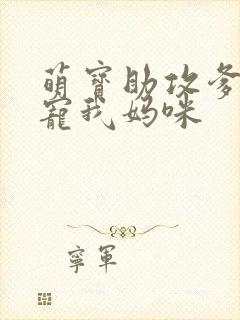 萌寶助攻爹
寵我媽咪
寧軍